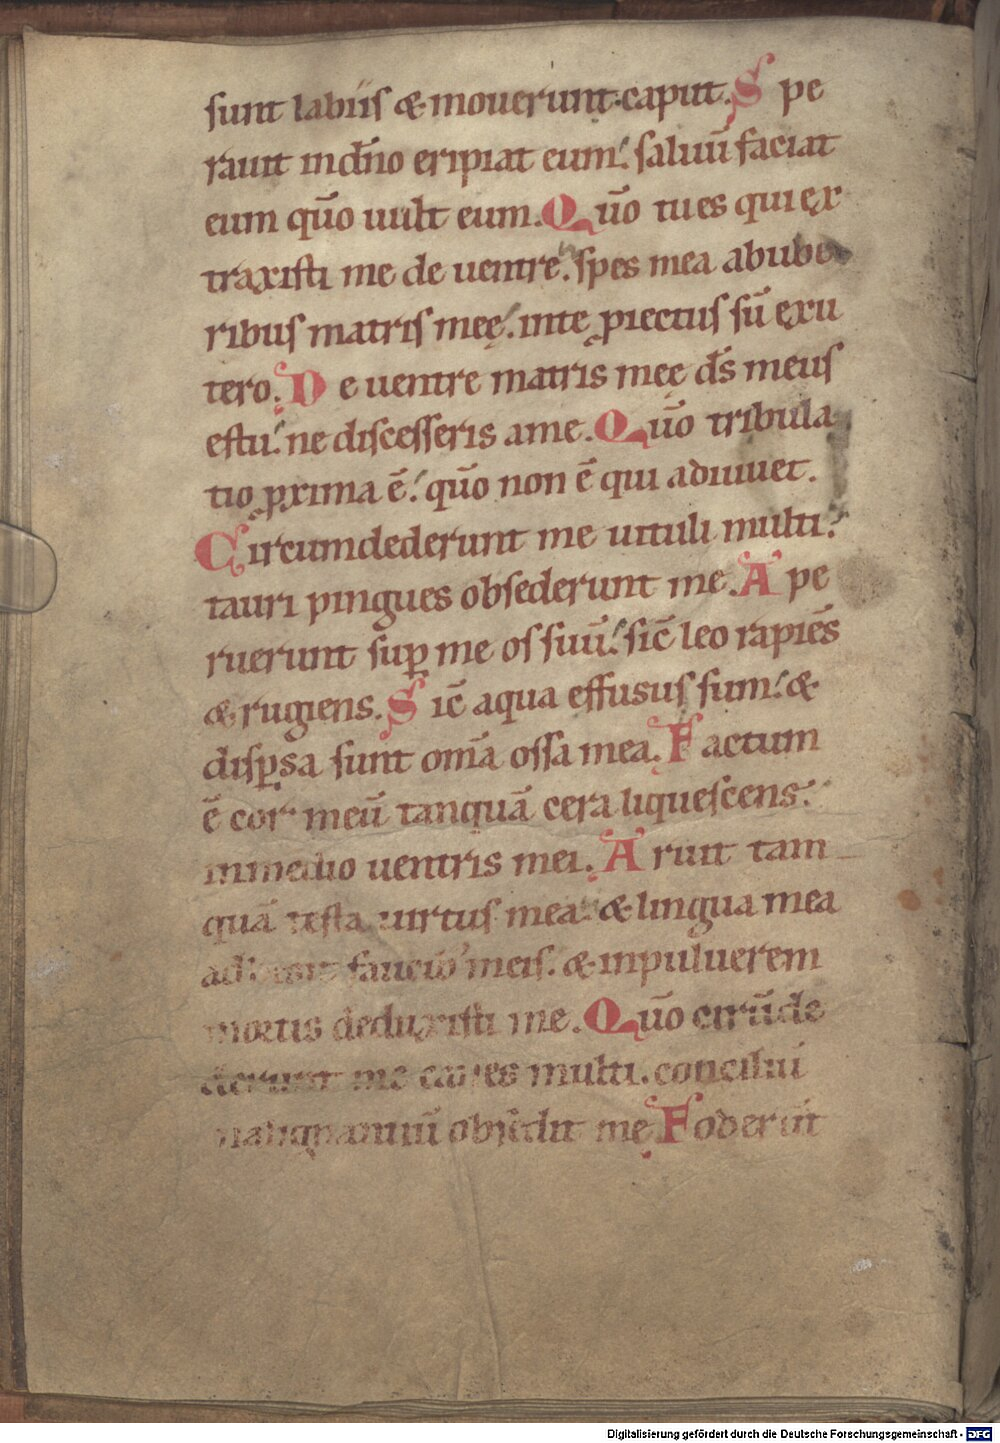 sunt labiis & mouerunt caput. Spe
rauit in dn̄o eripiat eum. saluū faciat
eum qūo uult eum. Qūo tu es qui ex
traxisti me de uentre. spes mea ab ube
ribus matris meę. in te ꝓiectus sū ex u
tero. De uentre matris meę ds̄ meus
es tu. ne discesseris a me. Qūo tribula
tio ꝓxima ē. qūo non ē qui adiuuet.
Circumdederunt me uituli multi.
tauri pingues obsederunt me. Ape
ruerunt suꝑ me os suū. sic̄ leo rapiēs
& rugiens. Sic̄ aqua effusus sum. &
disꝑsa sunt om̄a ossa mea. Factum
ē cor meū tanquā cera liquescens.
in medio uentris mei. Aruit tam
quā testa uirtus mea. & lingua mea
faucib; meis. & in puluerem
mortis deduxisti me. Qūo circūde
derunt me canes multi. conciliū
malignantiū obsedit me Foderūt
Digitalisierung gefördert durch die Deutsche Forschungsgemeinschaft - DFG